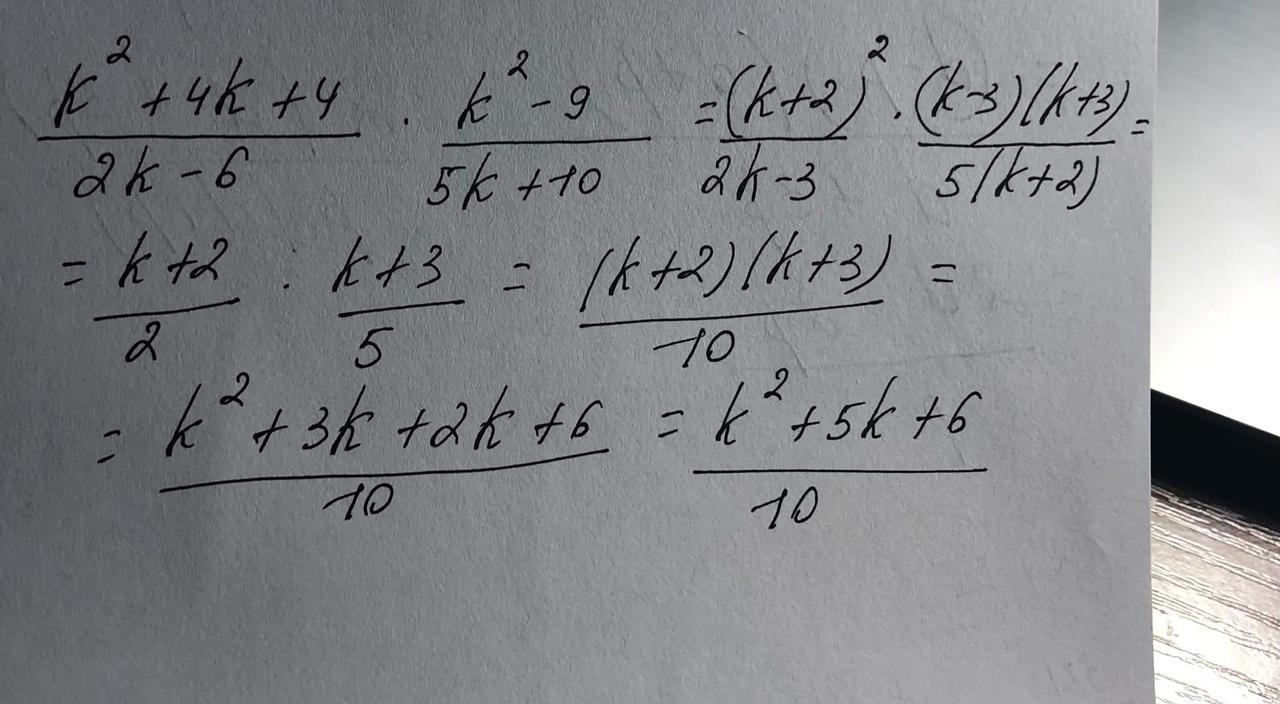 (k² + 4k + 4)/(2k - 6) · (k² - 9)/(5k + 10) = (k+2)²/(2k-3) · (k-3)(k+3)/(5(k+2)) =
= (k+2)/2 : (k+3)/5 = (k+2)(k+3)/10 =
= (k² + 3k + 2k + 6)/10 = (k² + 5k + 6)/10